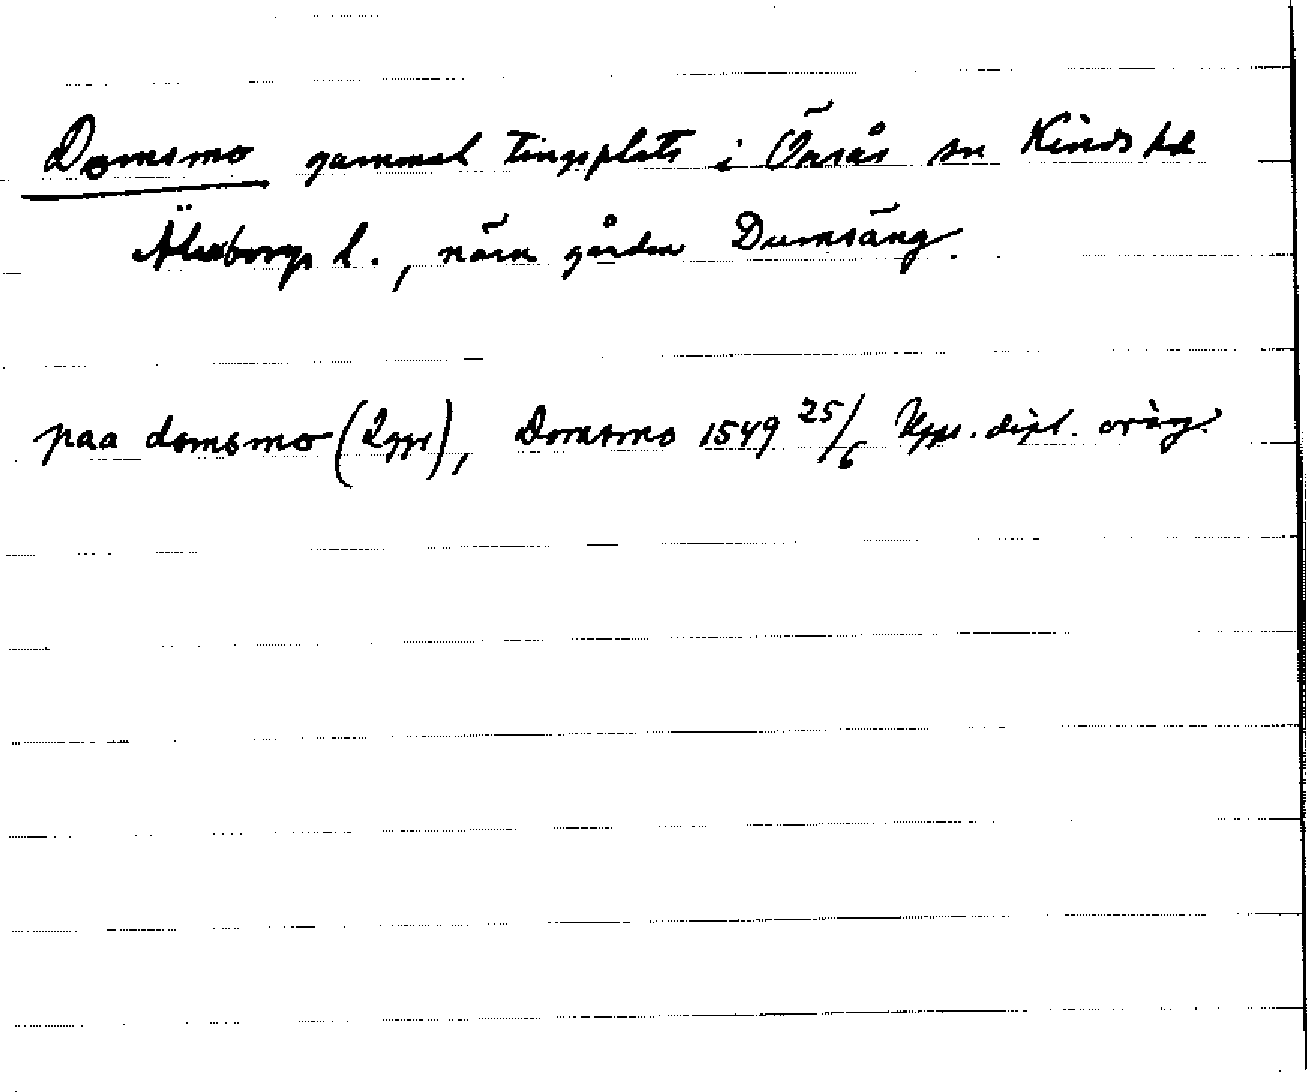 Domsmo gammal tingsplats i Önsås sn Kinds hd
Älvsborgs l., nära gården Dumsäng.
paa domsmo (2ggr), Domsmo 1549 25/6 Upps. dipl. orig.